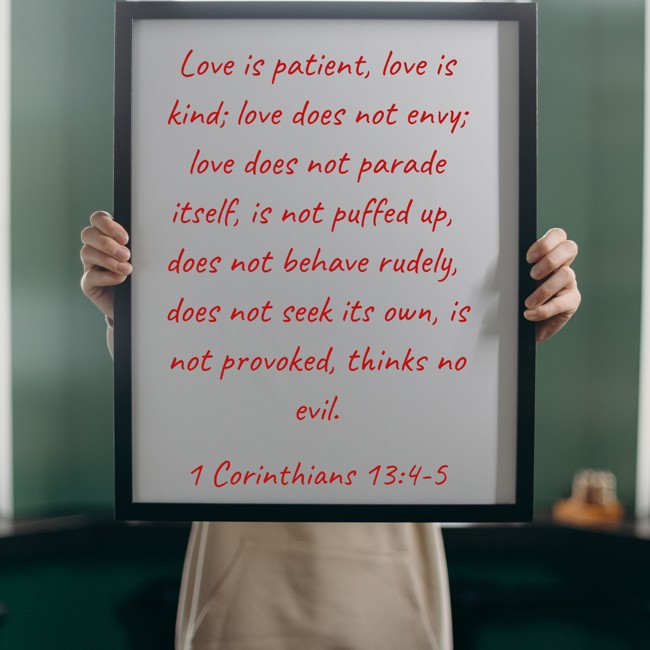 Love is patient, love is
kind; love does not envy;
love does not parade
itself, is not puffed up,
does not behave rudely,
does not seek its own, is
not provoked, thinks no
evil.
1 Corinthians 13:4-5